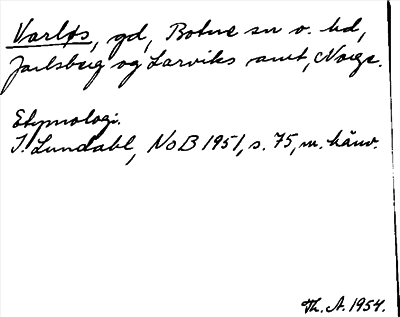 Varløs, gd, Botne sn o. hd,
Jarlsberg og Larviks amt, Norge.
Etymologi.
I. Lundahl, NoB 1951, s. 75, m. hänv.
Th. A. 1954.